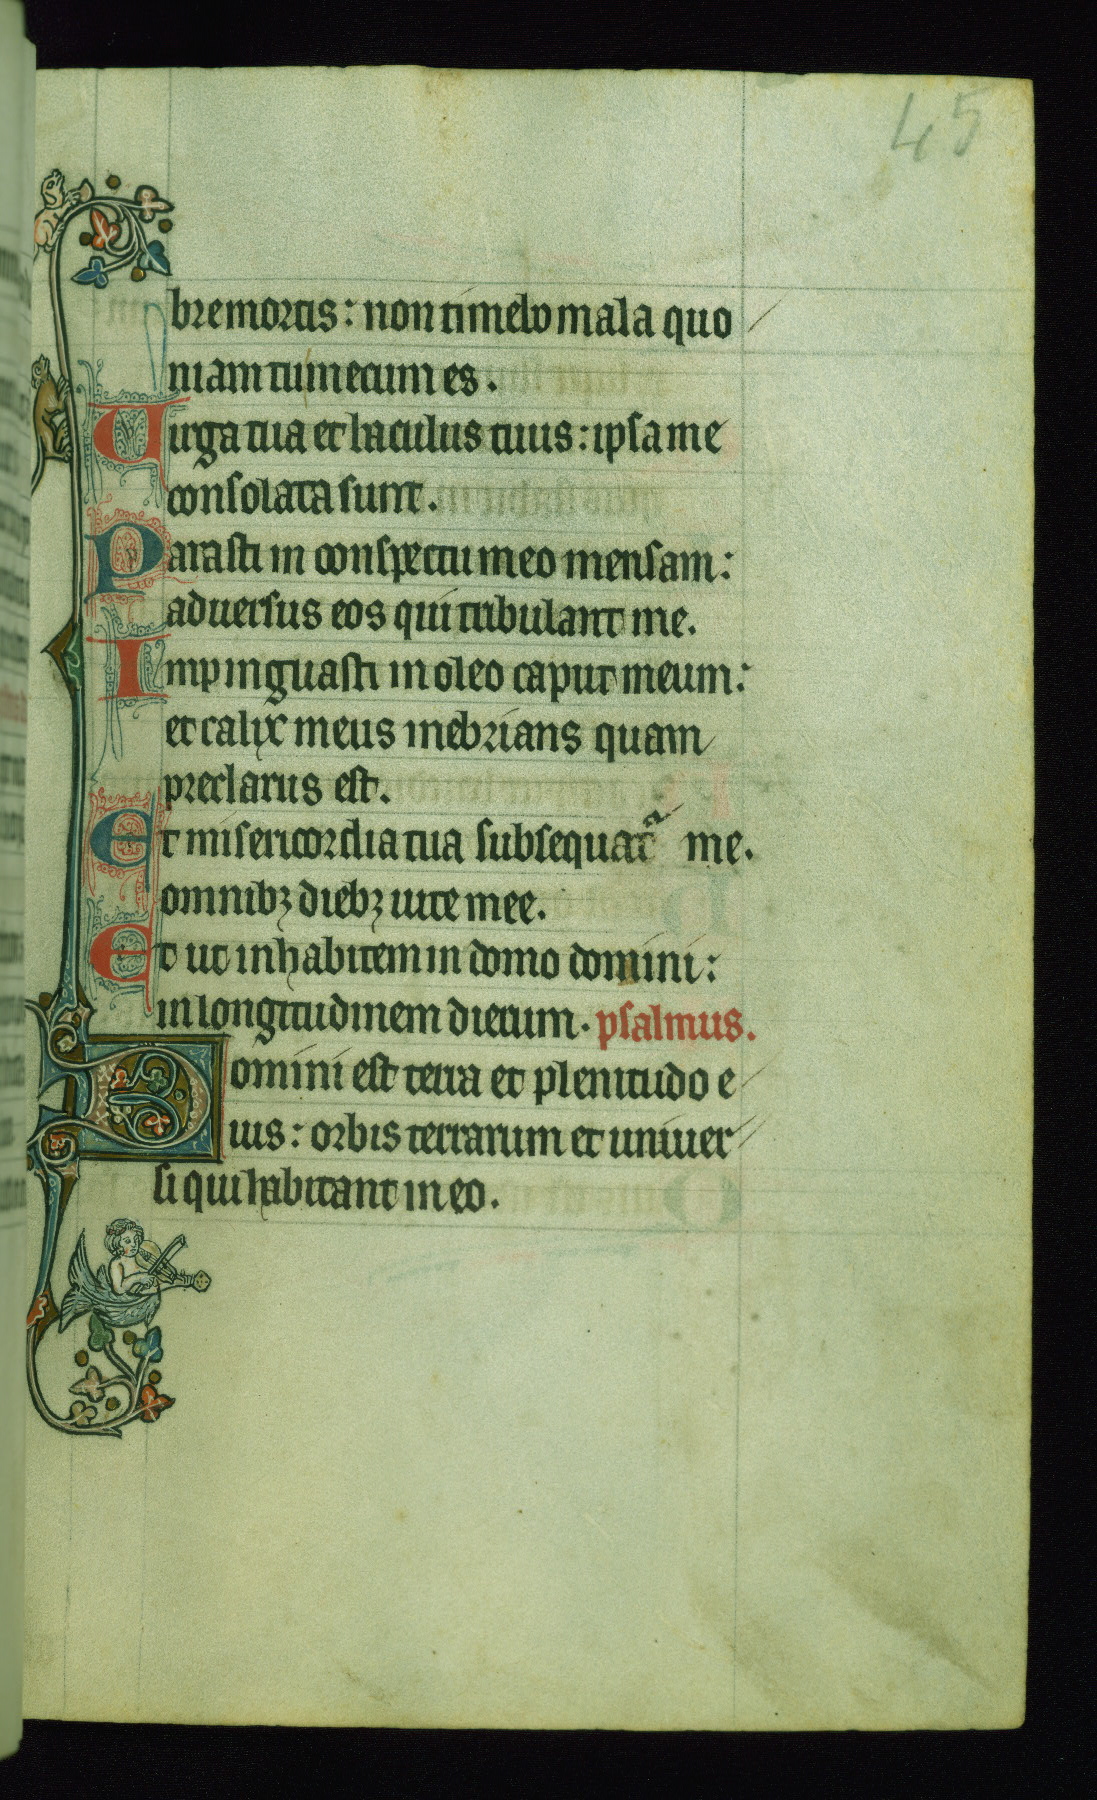 45
bre mortis: non timebo mala quo
niam tu mecum es.
Virga tua et baculus tuus: ipsa me
consolata sunt.
Parasti in conspectu meo mensam:
adversus eos qui tribulant me.
Impinguasti in oleo caput meum:
et calix meus inebrians quam
preclarus est.
Et misericordia tua subsequatr me.
omnibꝫ diebꝫ uite mee.
Et ut inhabitem in domo domini:
in longitudinem dierum. psalmus.
Domini est terra et plenitudo e
ius: orbis terrarum et univer
si qui habitant in eo.